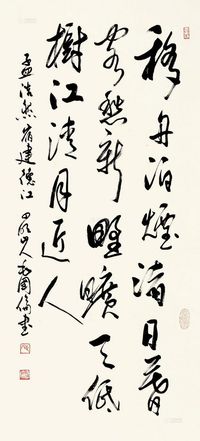 移舟泊煙渚日暮
客愁新野曠天低
樹江清月近人
孟浩然宿建德江